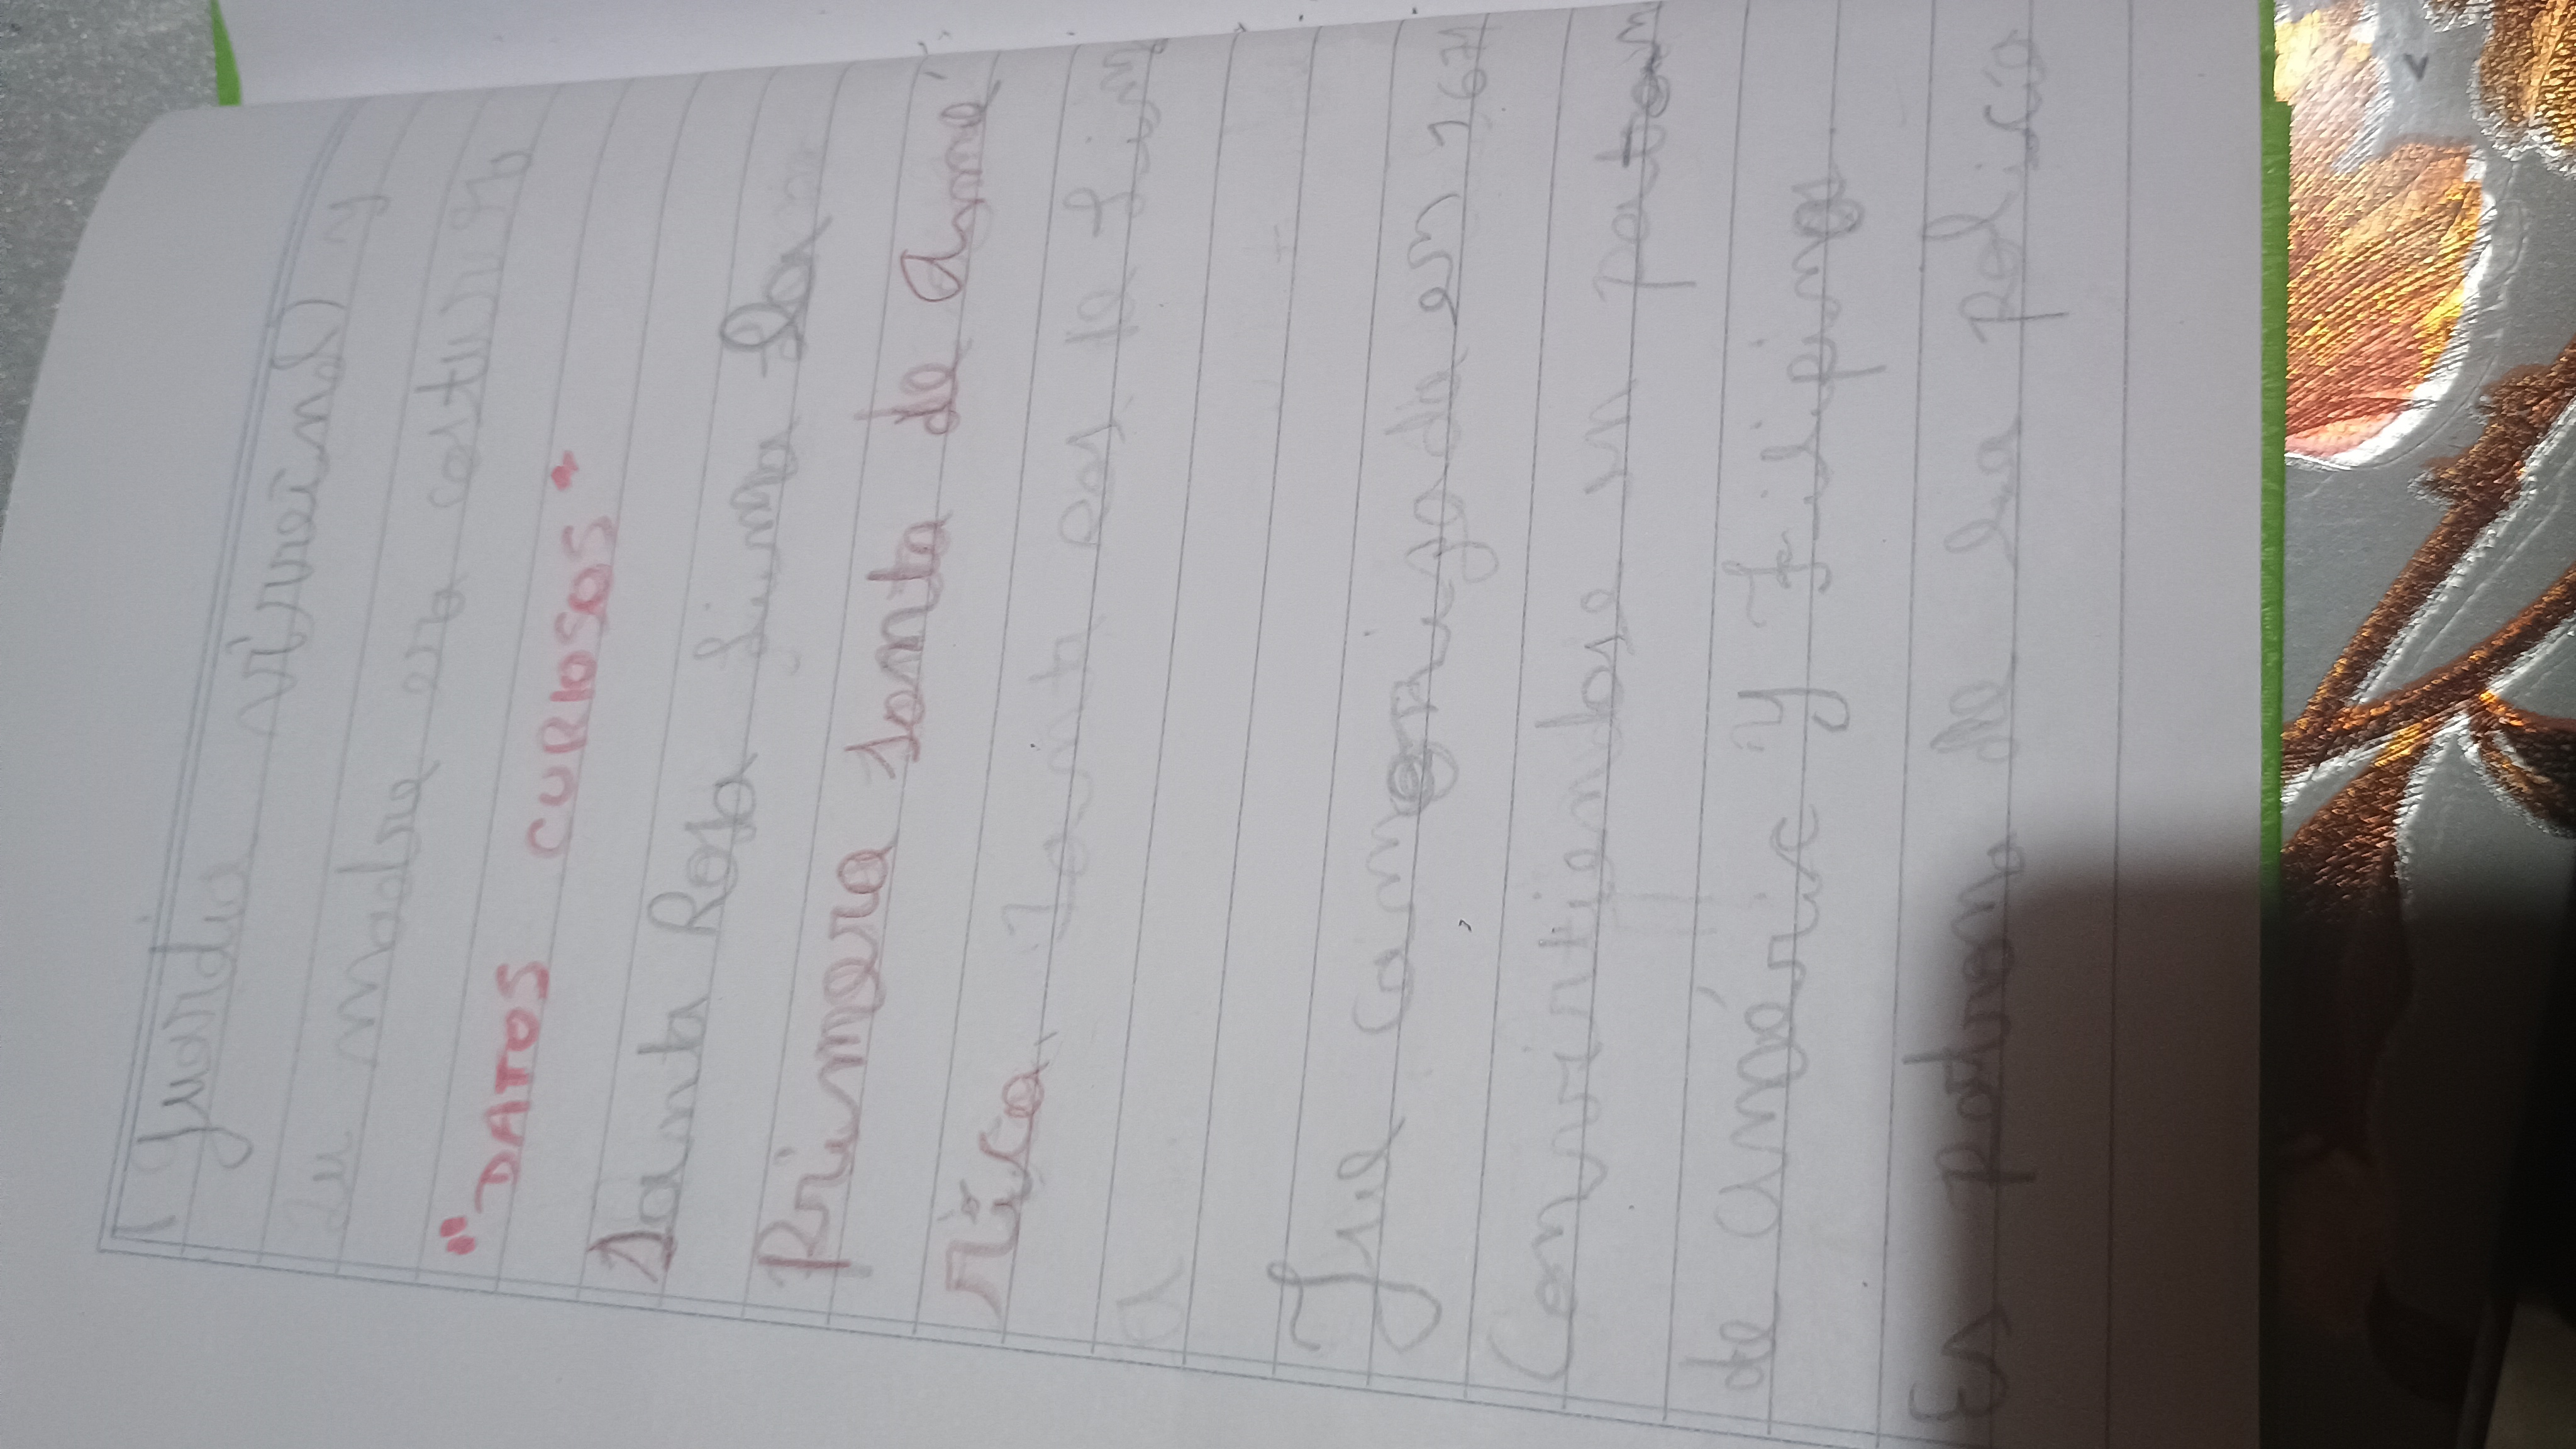 guardia virreinal) y
su madre era costurera
"DATOS CURIOSOS"
Santa Rosa Lima La
Primera santa de Amé
rica. Santa Ros de Lim
a
Fue canonizada en 1671
Convirtiendose en patron
de América y Filipinas.
Es patrona de la policía